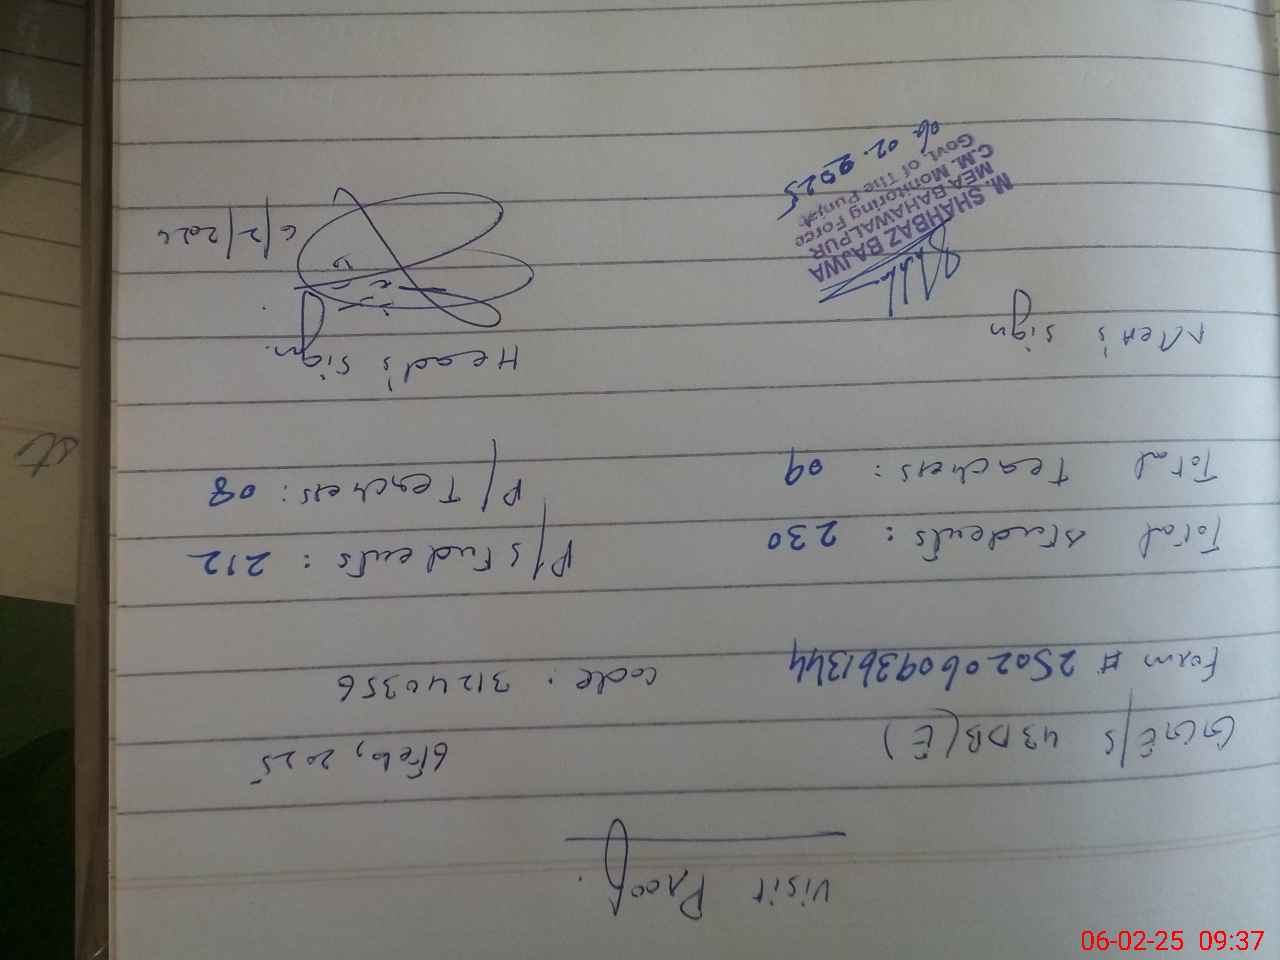 Visit Proof.
GGE/S 43DB(E) 6 Feb, 2025
Form # 25020609361344 Code: 31240356
Total students: 230 P/students: 212
Total Teachers: 09 P/Teachers: 08
Mea's sign Head's sign.
M. SHAHBAZ BAJWA
MEA BAHAWALPUR
C.M. Monitoring Force
Govt. of The Punjab
06.02.2025
6/2/202
06-02-25 09:37